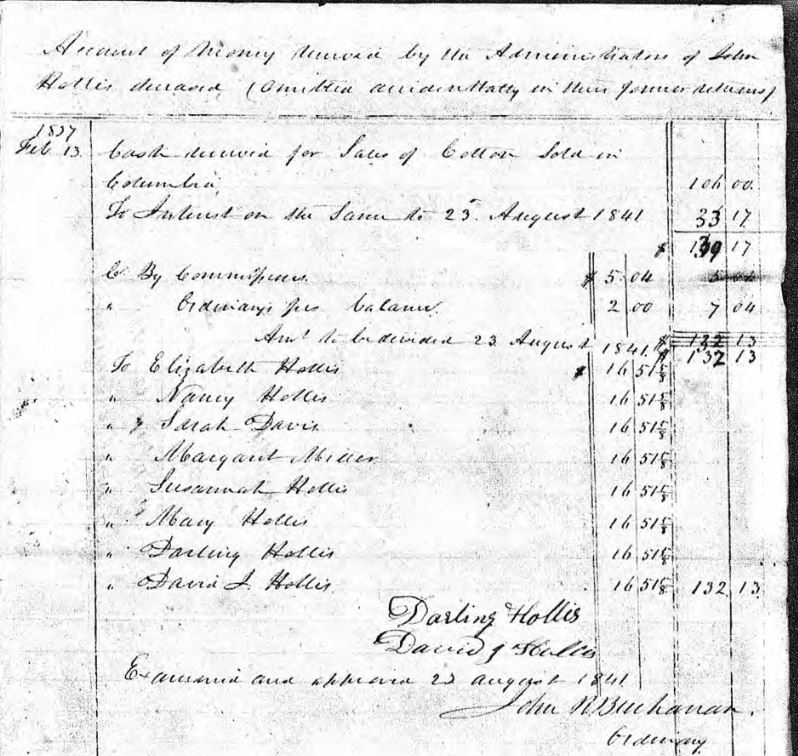 Account of Money received by the Administrators of John
Hollis deceased, (omitted accidentally in their former returns)
1837
Feb 13 Cash received for Sales of Cotton Sold in
Columbia, 106 00
To Interest on the Same to 23. August 1841 33 17
$ 139 17
Cr By Commissions $ 5.04
" Ordinarys fees balance 2 00 7 04
Amt to be divided 23 August 1841 $ 132 13
$ 132 13
To Elizabeth Hollis $ 16 51 5/8
" Nancy Hollis 16 51 5/8
" Sarah Davis 16 51 5/8
" Margaret Miller 16 51 5/8
" Susannah Hollis 16 51 5/8
" Mary Hollis 16 51 5/8
" Darling Hollis 16 51 5/8
" David J Hollis 16 51 5/8 132 13
Darling Hollis
David J Hollis
Examined and approved 23 august 1841
John Buchanan.
Ordinary